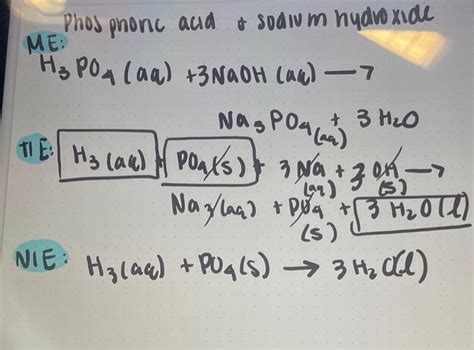 Phosphoric acid & sodium hydroxide
ME:
H3PO4(aq) + 3NaOH(aq) →
Na3PO4(aq) + 3H2O
TIE: H3(aq) + PO4(s) + 3Na(aq) + 3OH(s) →
Na3(aq) + PO4(s) + 3H2O(l)
NIE: H3(aq) + PO4(s) → 3H2O(l)